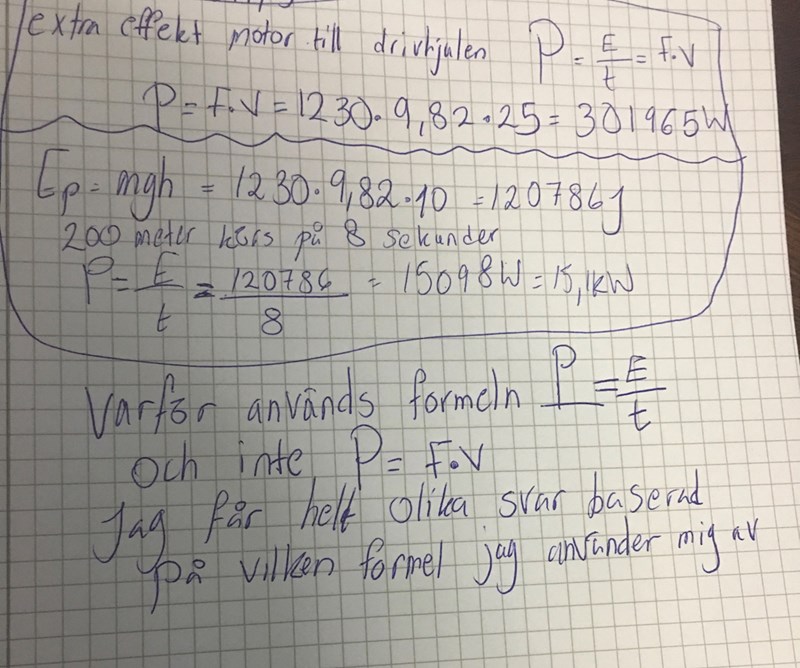 extra effekt motor till drivhjulen P = E/t = F·V
P = F·V = 1230·9,82·25 = 301965W
Ep = mgh = 1230·9,82·10 = 120786J
200 meter körs på 8 sekunder
P = E/t = 120786/8 = 15098W = 15,1kW
Varför används formeln P = E/t
och inte P = F·V
Jag får helt olika svar baserad
på vilken formel jag använder mig av